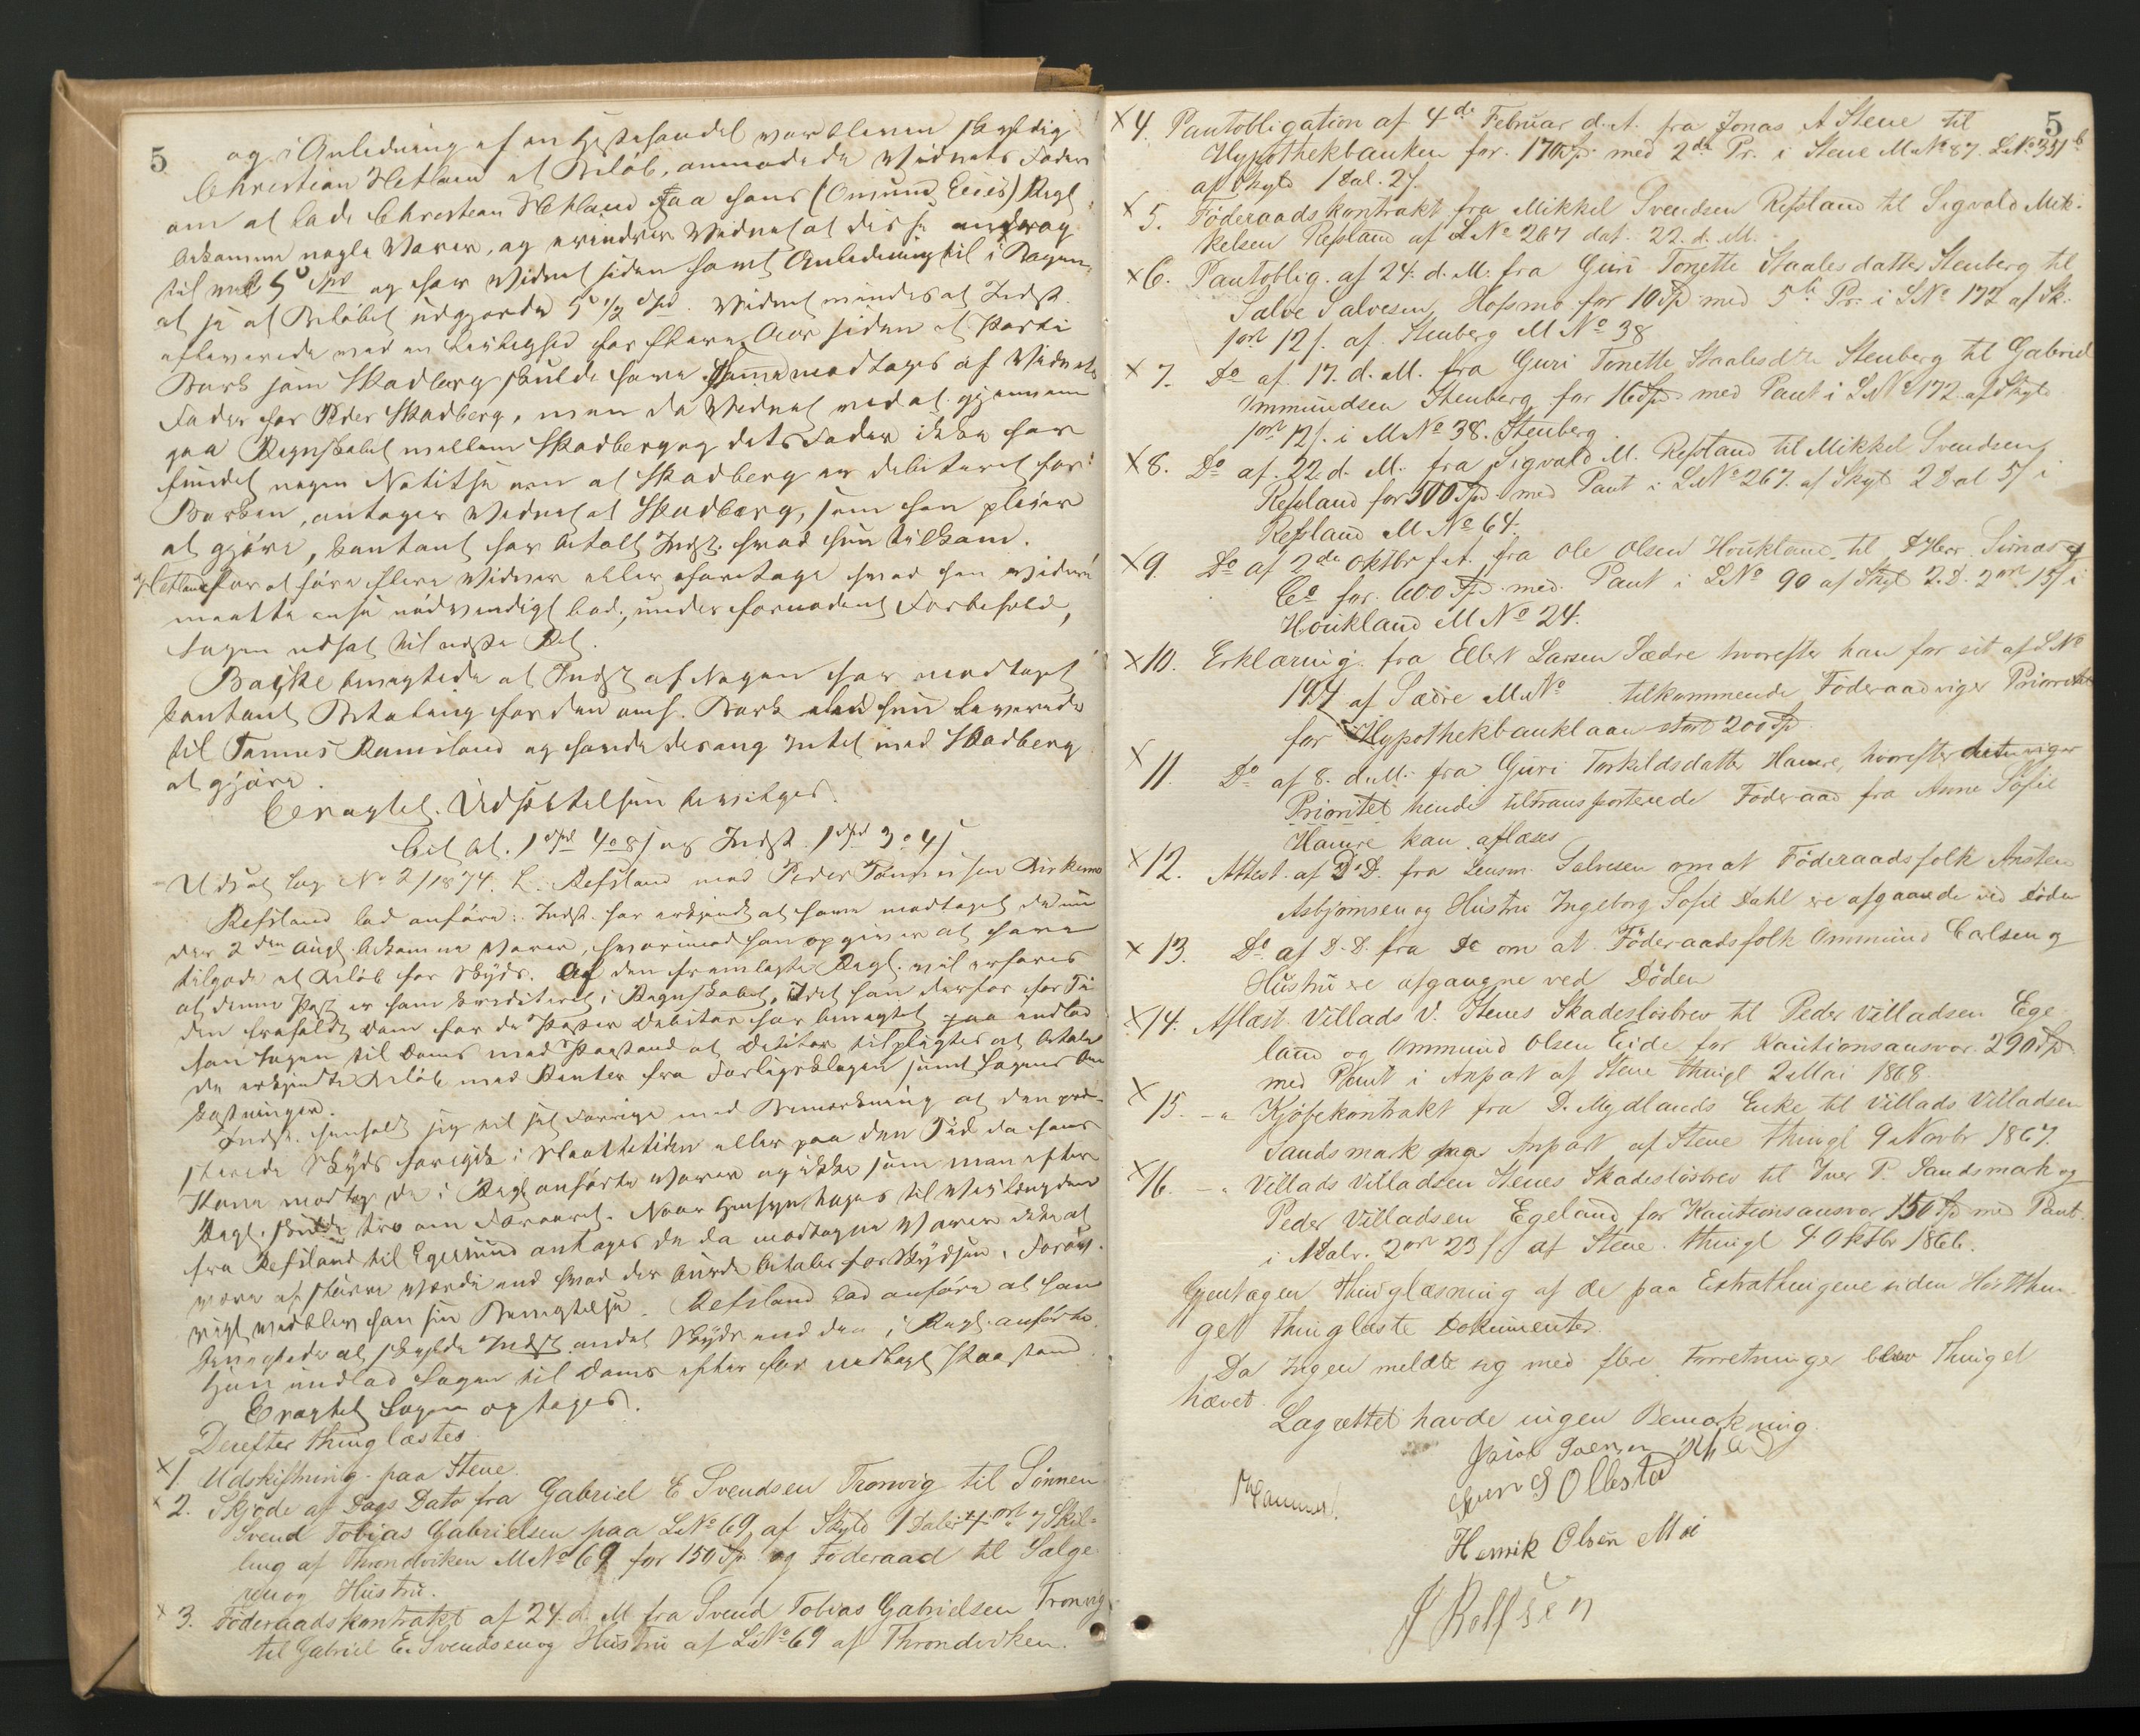 5
og i Anledning af en Hestehandel var bleven skyldig
Christian Hetland et Beløb, anmodede Vidnets Fader
om at lade Christian Hetland faa hans (Omund Eeies) Regl
bekomme nogle Varer, og erindrer Vidnet at disse androg
til ved 5 Spd og har Vidnet siden havt Anledning til i Bogen
at se at Beløbet udgjorde 5 1/2 Spd. Vidnet mindes at Indst.
leverede ved en Leilighed for flere Aar siden et Parti
Bark som Skadberg skulde have modtaget af Vidnets
Fader for Peder Skadberg, men da Vidnet ved at gjennem
gaa Regnskabet mellem Skadberg og dets Fader ikke har
fundet nogen Notitse om at Skadberg er debiteret for
Barken, antager Vidnet at Skadberg, som han pleier
at gjøre, kontant har betalt Indst. hvad hun tilkom.
Hetland for at føre flere Vidner eller foretage hvad han videre
maatte anse nødvendigt bad, under fornødent Forbehold,
Sagen udsat til næste Ret.
Batzke benegtede at Indst af Nogen har modtaget
kontant Betaling for den omh. Bark hun leverede
til Tønnes Ramsland og havde desang Intet med Skadberg
at gjøre.
Eeragtet. Udsættelsen bevilges.
Cit bet. 1 Spd 4 o 8 s og Indst. 1 Spd 3 o 4 s
Udsat Sag No 2/1874. L. Refsland mod Peder Tønnesen Birkemo
Refsland lod anføre: Indst. har erkjendt at have modtaget de nu
der 2den Augl. bekomne Varer, hvorimod han opgiver at have
tilgode et Beløb for Skyds. Af den fremlagte Regl. vil erfares
at denne Post er ham krediteret i Regnskabet, Idet han derfor for Ti
den frafaldt Dom for de Poster Debitor har benegtet indlod
han Sagen til Doms med Paastand at Debitor tilpligtes at betale
de erkjendte Beløb med Renter fra Forligsklagen samt Sagens Om
kostninger.
Indst. henholdt sig til sit Forrige med Bemærkning at den præ-
sterede Skyds foregik i Slaattetiden eller paa den Tid da hans
Kone modtog de i Regl anførte Varer og ikke som man efter
Regl. skulde tro om Foraaret. Naar Hensyn tages til Veilængden
fra Refsland til Egersund antages de da modtagne Varer ikke at
være af større Værdi end hvad der burde betales for Skydsen. Forøv.
rigt vedblev han sin Benegtelse. Refsland lod anføre at han
benegtede at skylde Indst andet Skyds end den i Regl. anførte.
Han indlod Sagen til Doms efter før nedlagt Paastand.
Eragtet Sagen optages.
Derefter thinglæstes
x 1. Udskiftning paa Stene.
x 2. Skjøde af Dags Dato fra Gabriel E Svendsen Tronvig til Sønnen
Svend Tobias Gabrielsen paa L.No 69 af Skyld 1 Daler 4 ort 7 Skil-
ling af Throndviken M No 69 for 150 Sp. og Føderaad til Sælge
ren og Hustru.
x 3. Føderaadskontrakt af 24. d. M fra Svend Tobias Gabrielsen Tronvig
til Gabriel E. Svendsen og Hustru af L.No 69 af Throndviken.
5
x 4. Pantobligation af 4de Februar d. A. fra Jonas A Stene til
Hypothekbanken for 170 Sp. med 2den Pr. i Stene M No 87. L.No 351b
af Skyld 1 Dal. 2 s.
x 5. Føderaadskontrakt fra Mikkel Svendsen Refsland til Sigvald Mik-
kelsen Refsland af L No 267 dat. 22. d. M.
x 6. Pantoblig. af 24. d. M. fra Guri Tonette Staalesdatter Stenberg til
Salve Salvesen Hofsmo for 10 Sp med 5te Pr. i L No 172 af Sk.
1 ort 12 s. af Stenberg M No 38
x 7. Do af 17. d. M. fra Guri Tonette Staalesdtr Stenberg til Gabriel
Ommundsen Stenberg for 16 Spd med Pant i L No 172 af Skyld
1 ort 12 s. i M No 38. Stenberg
x 8. Do af 22 d. M. fra Sigvald M. Refsland til Mikkel Svendsen
Refsland for 300 Spd med Pant i L.No 267. af Skyld 2 Dal 5 s i
Refsland M No 64.
x 9. Do af 2de Oktbr f. A. fra Ole Olsen Houkland til DHerr. Simas &
Co for 600 Spd med Pant i L No 90 af Skyld 2. D. 2 ort 13 s i
Houkland M No 24.
x 10. Erklæring fra Ellert Larsen Sædre hvorefter han for sit af L No
194 af Sædre M No tilkommende Føderaad viger Prioritet
for Hypothekbanklaan stort 200 Spd.
x 11. Do af 8. d. M. fra Guri Torkildsdatter Hamre, hvorefter viger
Prioritet hende tiltransporterede Føderaad fra Anne Sofie
Hamre kan aflæses
x 12. Attest af D. D. fra Lensm. Salvesen om at Føderaadsfolk Ansten
Asbjørnsen og Hustru Ingeborg Sofie Dahl ere afgaaede ved Døden
x 13. Do af D. D. fra Do om at Føderaadsfolk Ommund Carlsen og
Hustru ere afgangne ved Døden
x 14. Aflæst. Villads V. Stenes Skadesløsbrev til Peder Villadsen Ege
land og Ommund Olsen Eide for Kautionsansvar 290 Spd
med Pant i Anpart af Stene thingl 2 Mai 1868.
x 15. - " Kjøbekontrakt fra D. Mydlands Enke til Villads Villadsen
Sandsmark paa Anpart af Stene thingl 9 Novbr 1867.
x 16. - " Villads Villadsen Stenes Skadesløsbrev til Iver P. Sandsmark og
Peder Villadsen Egeland for Kautionsansvar 150 Spd med Pant
i 1 Dalr. 2 ort 23 s af Stene. thingl 4 Oktbr 1866.
Gjentagen Thinglæsning af de paa Extrathingene siden Høstthin
get thinglæste Dokumenter
Da Ingen meldte sig med flere Forretninger blev Thinget
hævet.
Lagrettet havde ingen Bemærkning.
Hammer.
Ollestad
Henrik Olsen Moi